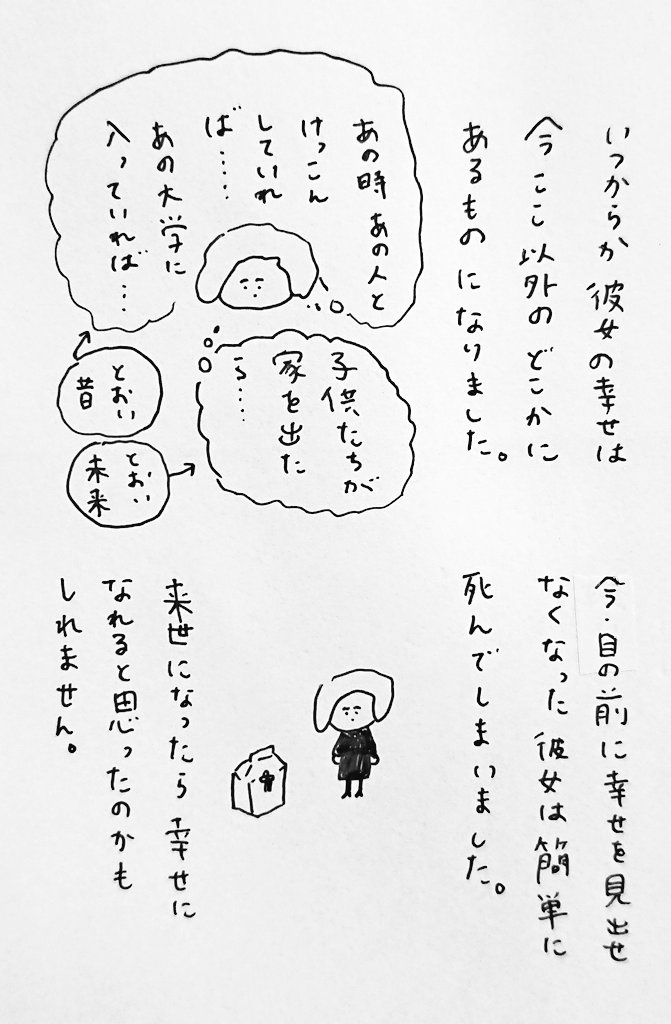 いつからか彼女の幸せは
今ここ以外のどこかに
あるものになりました。
あの時あの人と
けっこん
していれ
ば……
あの大学に
入っていれば…
子供たちが
家を出た
ら……
とおい
昔
とおい
未来
今・目の前に幸せを見出せ
なくなった彼女は簡単に
死んでしまいました。
来世になったら幸せに
なれると思ったのかも
しれません。